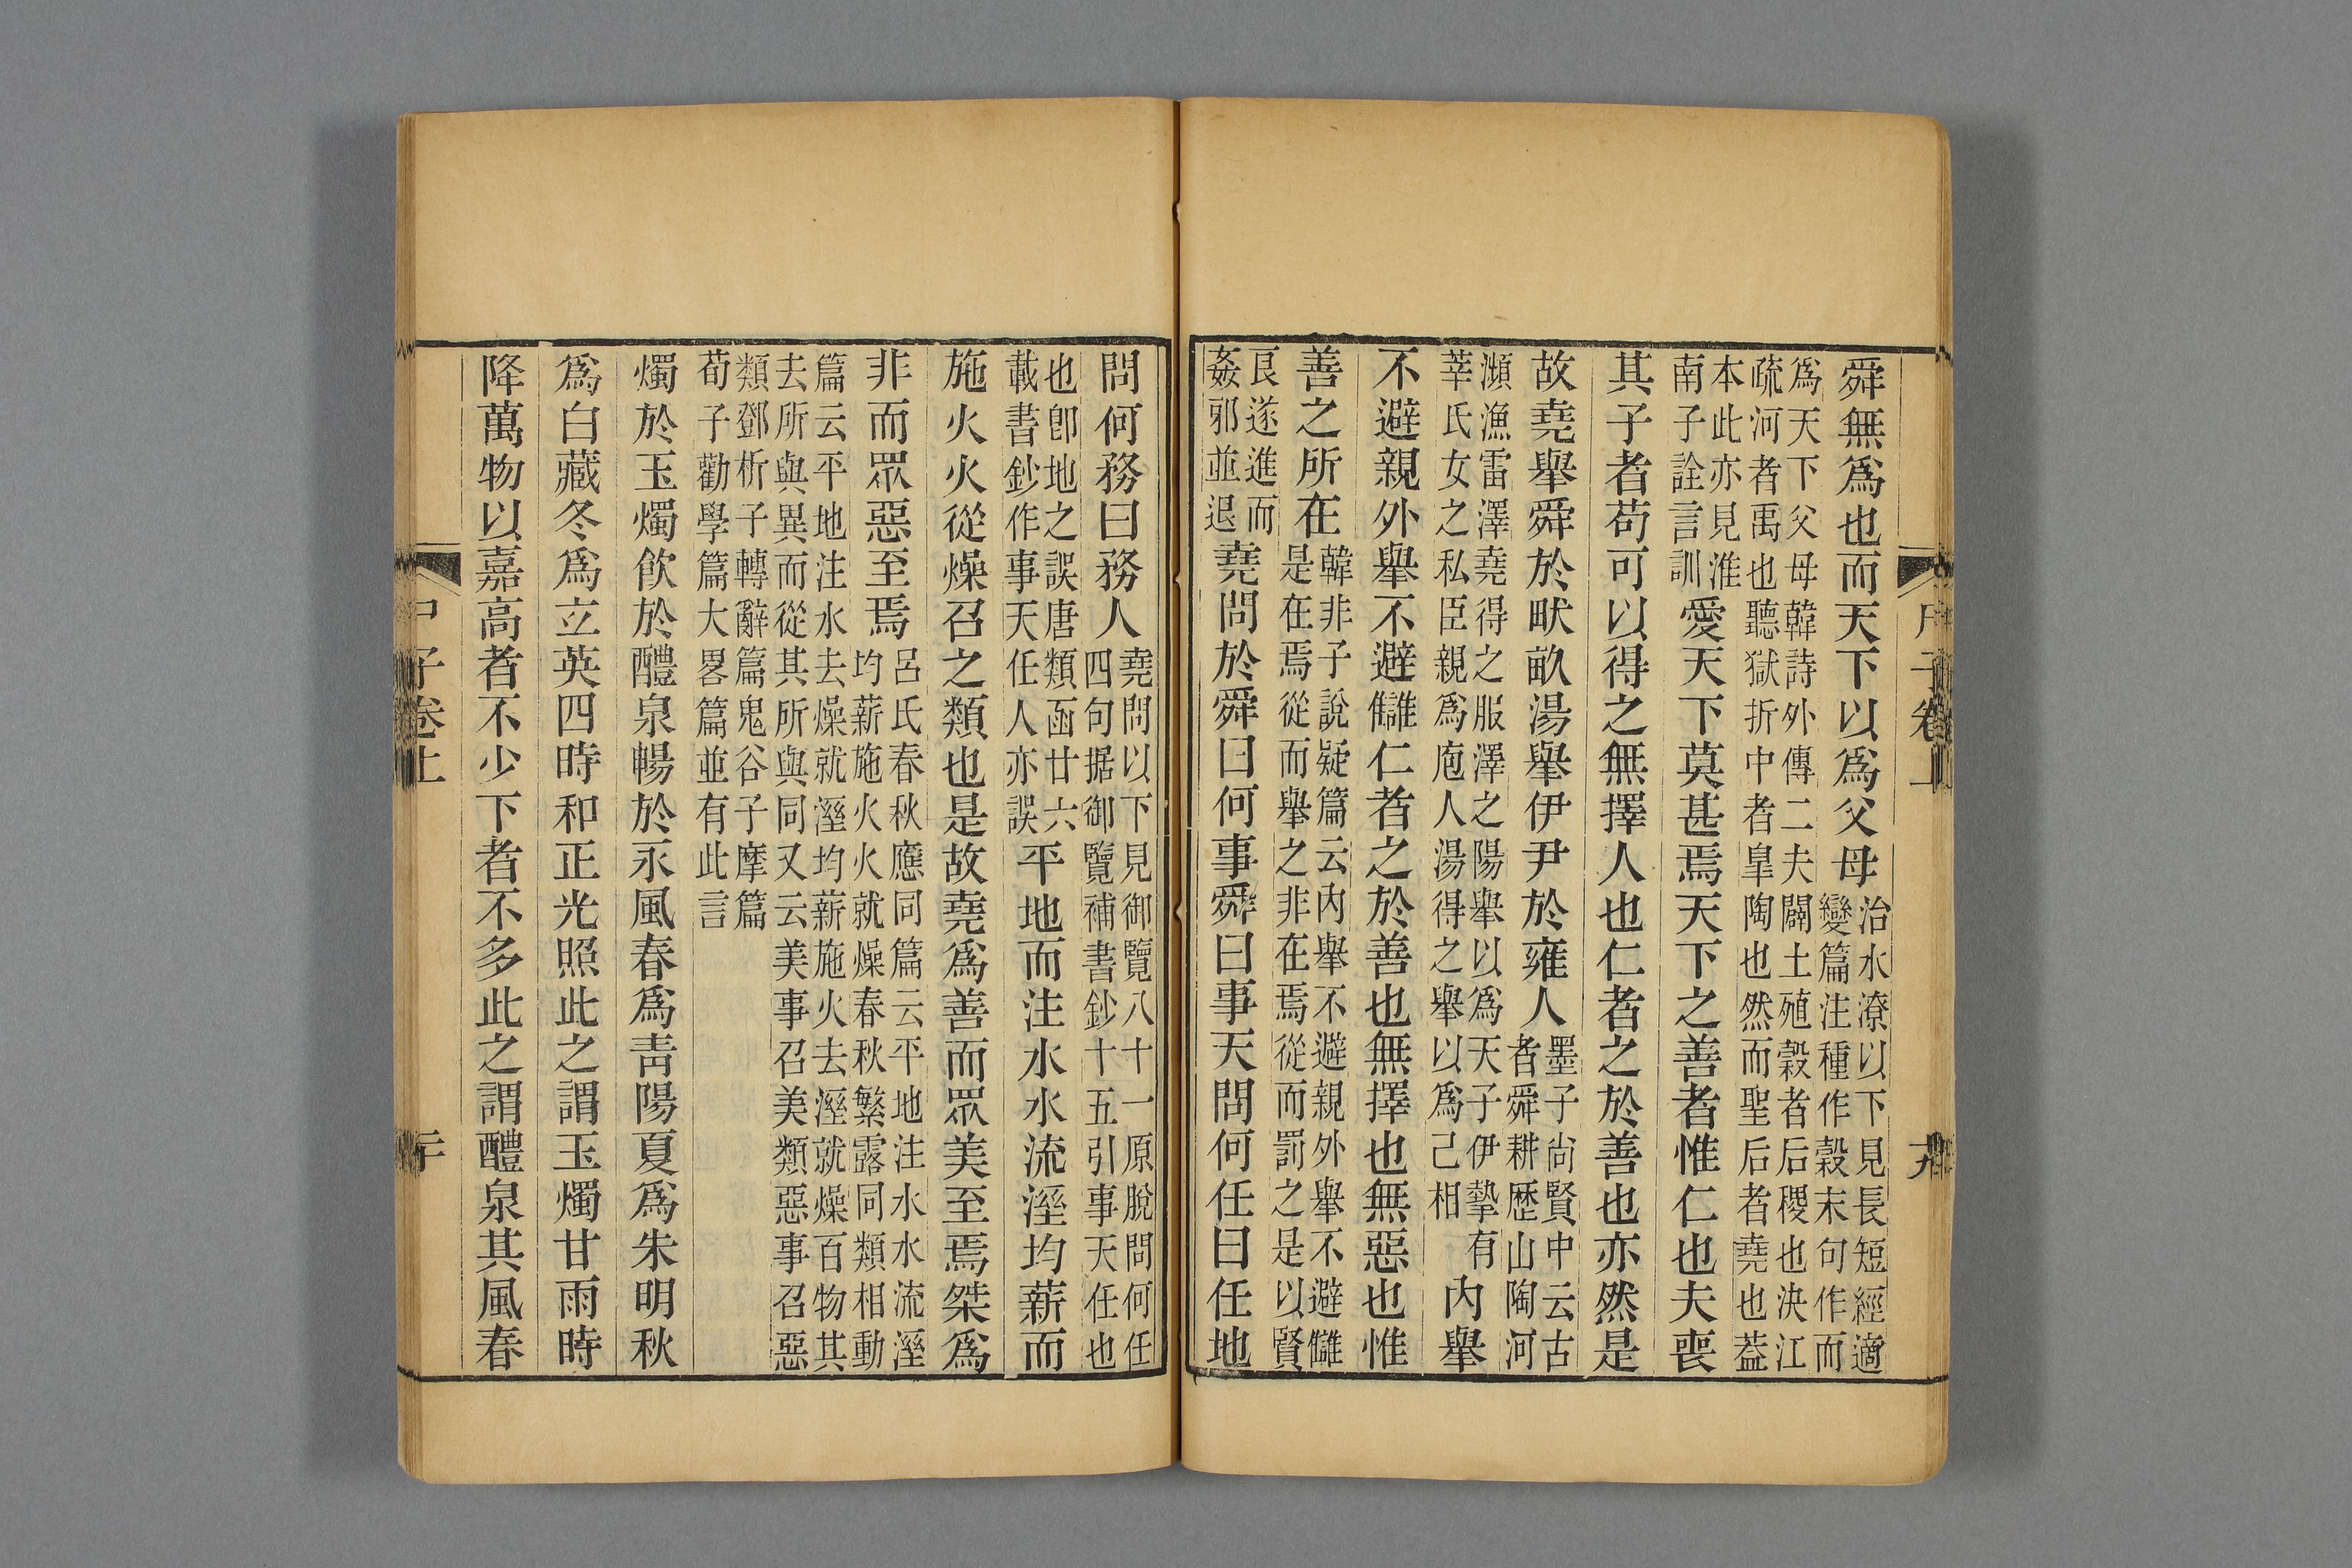 尸子卷上
舜無爲也而天下以爲父母治水潦以下見長短經適
變篇注種作穀末句作而
爲天下父母韓詩外傳二夫闢土殖穀者后稷也決江
疏河者禹也聽獄折中者臯陶也然而聖后者堯也葢
本此亦見淮
南子詮言訓愛天下莫甚焉天下之善者惟仁也夫喪
其子者苟可以得之無擇人也仁者之於善也亦然是
故堯舉舜於畎畝湯舉伊尹於雍人墨子尚賢中云古
者舜耕歷山陶河
瀕漁雷澤堯得之服澤之陽舉以爲天子伊摯有
莘氏女之私臣親爲庖人湯得之舉以爲己相內舉
不避親外舉不避讎仁者之於善也無擇也無惡也惟
善之所在韓非子說疑篇云內舉不避親外舉不避讎
是在焉從而舉之非在焉從而罰之是以賢
良遂進而
姦邪並退堯問於舜曰何事舜曰事天問何任曰任地
問何務曰務人堯問以下見御覽八十一原脫問何任
四句据御覽補書鈔十五引事天任也
也卽地之誤唐類函廿六
載書鈔作事天任人亦誤平地而注水水流溼均薪而
施火火從燥召之類也是故堯爲善而眾美至焉桀爲
非而眾惡至焉呂氏春秋應同篇云平地注水水流溼
均薪施火火就燥春秋繁露同類相動
篇云平地注水去燥就溼均薪施火去溼就燥百物其
去所與異而從其所與同又云美事召美類惡事召惡
類鄧析子轉辭篇鬼谷子摩篇
荀子勸學篇大畧篇並有此言
燭於玉燭飮於醴泉暢於永風春爲靑陽夏爲朱明秋
爲白藏冬爲立英四時和正光照此之謂玉燭甘雨時
降萬物以嘉高者不少下者不多此之謂醴泉其風春
尸子卷上